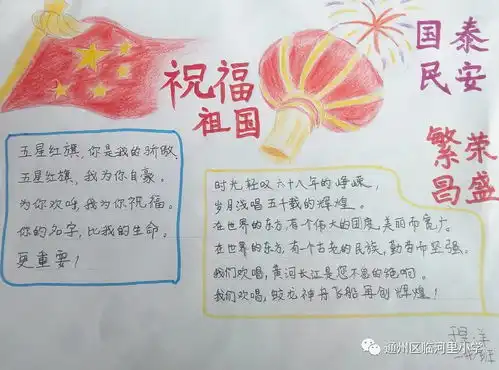 祝福
祖国
国泰
民安
繁荣
昌盛
五星红旗,你是我的骄傲.
五星红旗,我为你自豪.
为你欢呼,我为你祝福.
你的名字,比我的生命.
更重要!
时光轻吹六十八年的峥嵘,
岁月浅唱五十载的辉煌。
在世界的东方,有个伟大的国度,美丽而宽广。
在世界的东方,有一个古老的民族,勤劳而坚强。
我们欢唱,黄河长江是您不息的绝响。
我们欢唱,蛟龙神舟飞船再创辉煌!
通州区临河里小学